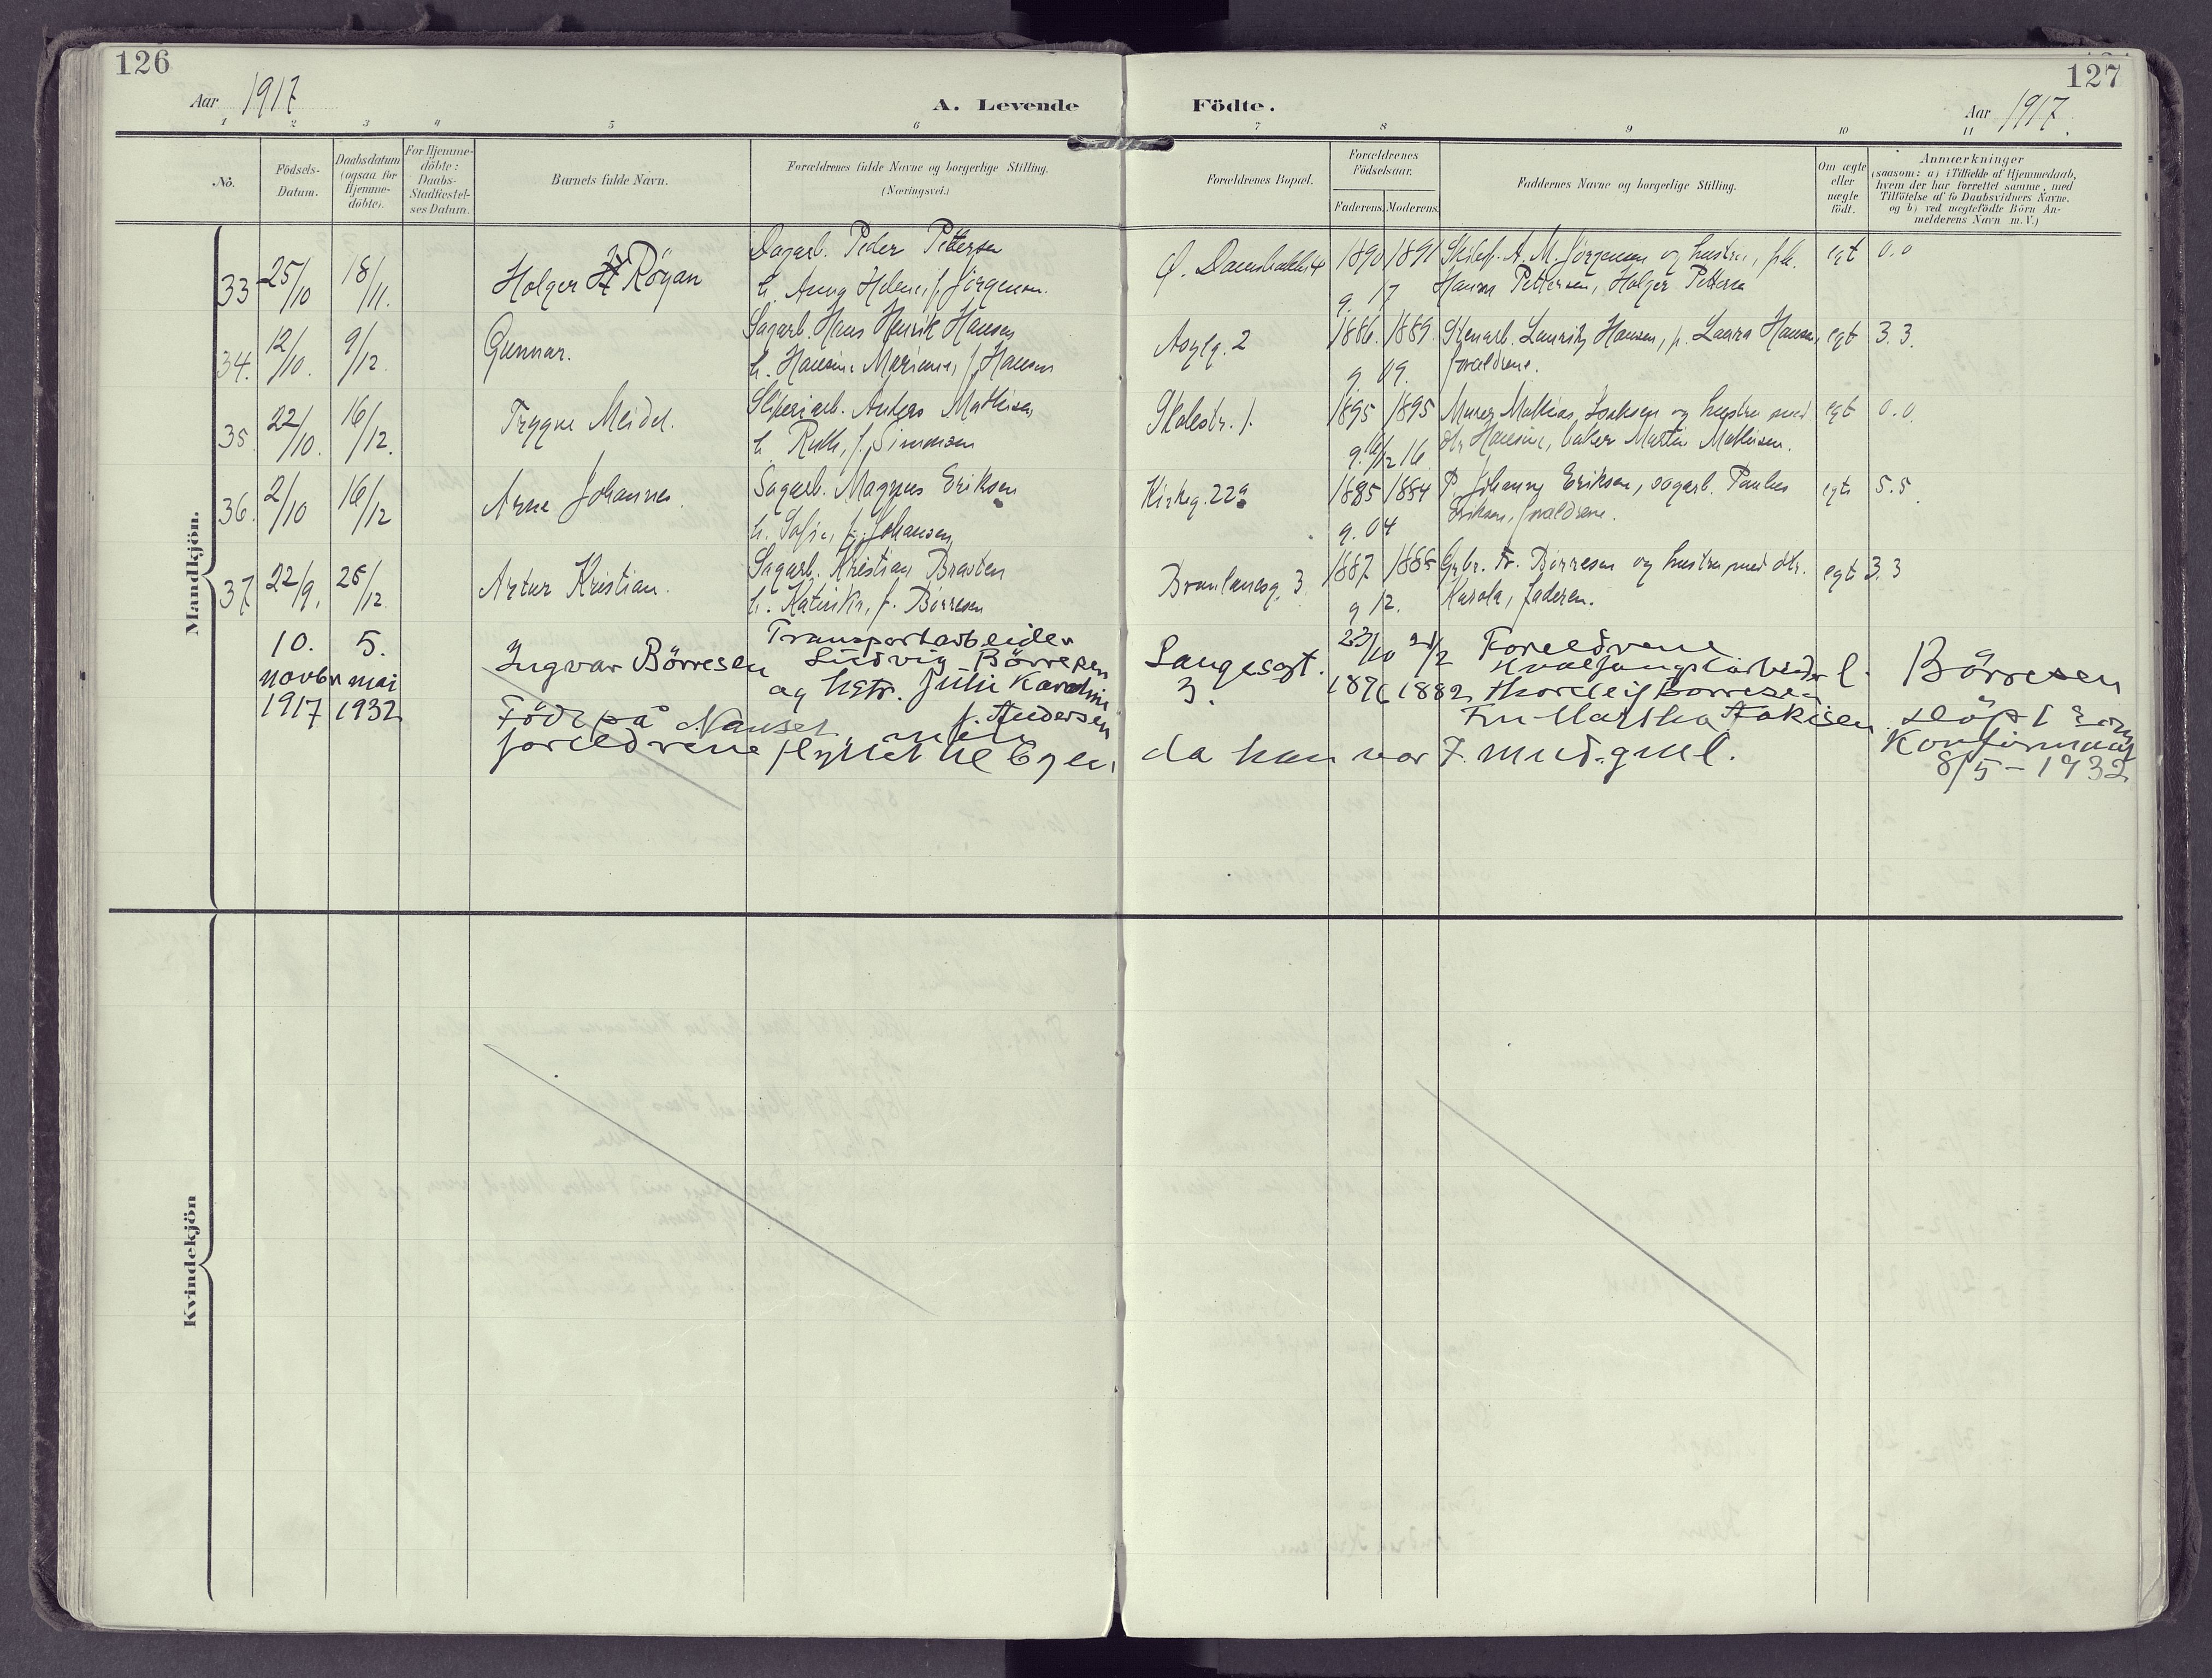 126
127
Aar 1917
A. Levende
Födte.
Aar 1917.
1 2 3 4 5 6 7 8 9 10 11
No.
Födsels-
Datum.
Daabsdatum
(ogsaa for
Hjemme-
döbte).
For Hjemme-
döbte:
Daabs-
Stadfæstel-
ses Datum.
Barnets fulde Navn.
Forældrenes fulde Navne og borgerlige Stilling.
(Næringsvei.)
Forældrenes Bopæl.
Forældrenes
Födselsaar.
Faderens. Moderens.
Faddernes Navne og borgerlige Stilling.
Om ægte
eller
uægte
födt.
Anmærkninger
(saasom: a) i Tilfælde af Hjemmedaab,
hvem der har forrettet samme, med
Tilföielse af to Daabsvidners Navne.
og b) ved uægtefödte Börn An-
melderens Navn m. V.)
Mandkjön.
33 25/10 18/11. Holger Røyan
Dagarb. Peder Pettersen
h. Anna Helene, f. Jörgensen.
1890 1891
g. 17
A. M. Jörgensen og hustru, pik.
Hanna Pettersen, Holger Pettersen
egt 0.0
34. 12/10. 9/12. Gunnar.
Sagarb. Hans Henrik Hansen
h. Hansine Marianne, f. Hansen
Asylg. 2
1886. 1889.
g. 09.
Stenarb. Lauritz Hansen, p. Laura Hansen,
forældrene.
egt 3.3.
35. 22/10. 16/12. Trygve Meidel.
Sliperiarb. Anders Mathisen
h. Ruth, f. Simonsen
Skolestr. 1.
1895 1895
g. 16/12 16.
Murer Mathias Isaksen og hustru med
dtr. Hansine, baker Martin Mathisen.
egt 0.0.
36. 2/10 16/12 Arne Johannes.
Sagarb. Magnus Eriksen
h. Sofie, f. Johansen
Kirkeg. 22a
1885 1884
g. 04
P. Johanne Eriksen, sagarb. Paulus
Eriksen, forældrene.
egt 5.5.
37. 22/9. 26/12. Artur Kristian.
Sagarb. Kristian Braaten
h. Katinka, f. Børresen
1887 1885
g 12.
Fr. Børresen og hustru med dtr.
Karola, faderen.
egt 3.3
10. 5.
novbr mai
1917 1932
Ingvar Börresen
Transportarbeider
Ludvig Börresen
og hstr. Julie Karoline
f. Andersen
Langesgt.
3.
23/10 21/2
1876 1882
Foreldrene
hvalfangstarbeider
Thorleif Borresen
Fru Martha
Börresen
döpt som
konfirmant
8/5 - 1932
Födt på men
foreldrene flyttet til byen da han var 7 mnd. gml.
Kvindekjön